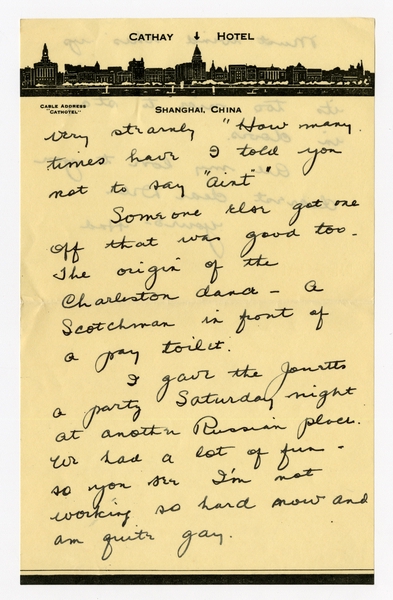 CATHAY HOTEL
CABLE ADDRESS
"CATHOTEL"
SHANGHAI, CHINA
very stearnly "How many
times have I told you
not to say "aint"
Someone else got one
off that was good too -
The origin of the
Charleston dance - a
Scotchman in front of
a pay toilet.
I gave the
a party Saturday night
at another Russian place.
We had a lot of fun -
so you see I'm not
working so hard now and
am quite gay.